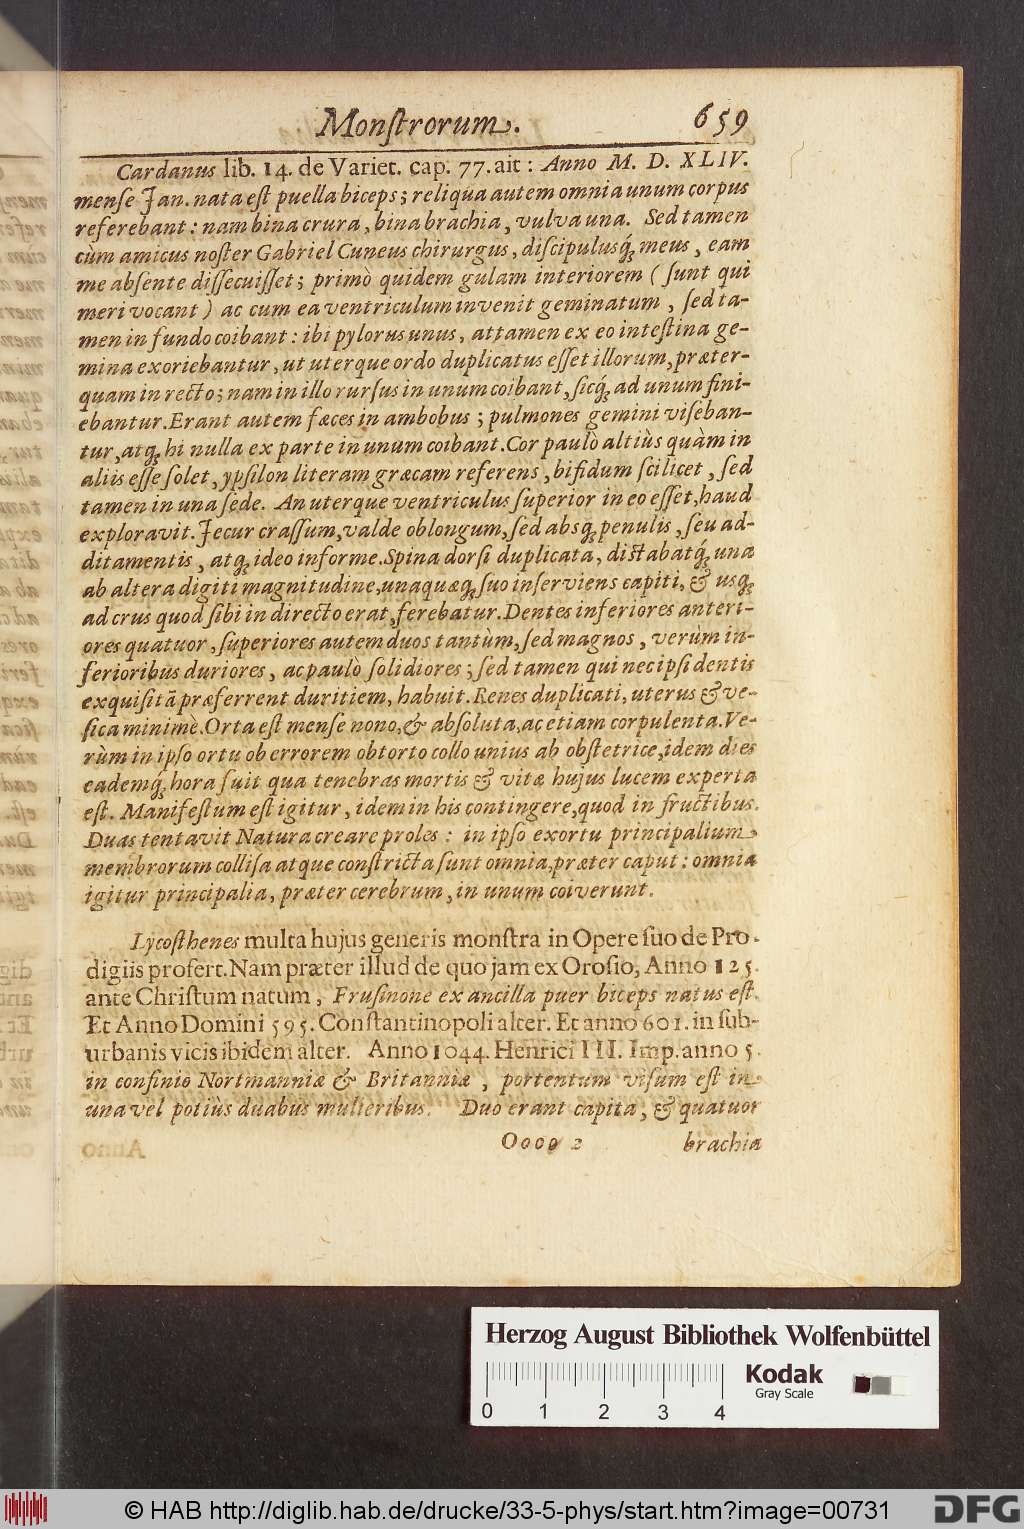 Monſtrorum.
659
Cardanus lib. 14. de Variet. cap. 77. ait : Anno M. D. XLIV.
menſe Jan. nata eſt puella biceps; reliqua autem omnia unum corpus
referebant : nam bina crura, bina brachia, vulva una. Sed tamen
cùm amicus noſter Gabriel Cuneus chirurgus, diſcipulusq́ꝫ meus, eam
me abſente diſſecuiſſet; primò quidem gulam interiorem ( ſunt qui
meri vocant ) ac cum ea ventriculum invenit geminatum, ſed ta-
men in fundo coibant : ibi pylorus unus, attamen ex eo inteſtina ge-
mina exoriebantur, ut uterque ordo duplicatus eſſet illorum, præter-
quam in recto; nam in illo rurſus in unum coibant, ſicqꝫ ad unum fini-
ebantur. Erant autem fæces in ambobus ; pulmones gemini viſeban-
tur, atqꝫ hi nulla ex parte in unum coibant. Cor paulò altiùs quàm in
aliis eſſe ſolet, ypſilon literam græcam referens, bifidum ſcilicet, ſed
tamen in una ſede. An uterque ventriculus ſuperior in eo eſſet, haud
exploravit. Jecur craſſum, valde oblongum, ſed absqꝫ penulis, ſeu ad-
ditamentis, atqꝫ ideo informe. Spina dorſi duplicata, diſtabatq́ꝫ una
ab altera digiti magnitudine, unaquæqꝫ ſuo inſerviens capiti, & usqꝫ
ad crus quod ſibi in directo erat, ferebatur. Dentes inferiores anteri-
ores quatuor, ſuperiores autem duos tantùm, ſed magnos, verùm in-
ferioribus duriores, ac paulò ſolidiores; ſed tamen qui nec ipſi dentis
exquiſitā præferrent duritiem, habuit. Renes duplicati, uterus & ve-
ſica minimè. Orta eſt menſe nono, & abſoluta, ac etiam corpulenta. Ve-
rùm in ipſo ortu ob errorem obtorto collo unius ab obſtetrice, idem dies
eademq́ꝫ hora fuit qua tenebras mortis & vitæ hujus lucem experta
eſt. Manifeſtum eſt igitur, idem in his contingere, quod in fructibus.
Duas tentavit Natura creare proles : in ipſo exortu principalium
membrorum colliſa atque conſtricta ſunt omnia, præter caput : omnia
igitur principalia, præter cerebrum, in unum coiverunt.
Lycoſthenes multa hujus generis monſtra in Opere ſuo de Pro-
digiis profert. Nam præter illud de quo jam ex Oroſio, Anno 125.
ante Chriſtum natum, Fruſinone ex ancilla puer biceps natus eſt.
Et Anno Domini 595. Conſtantinopoli alter. Et anno 601. in ſub-
urbanis vicis ibidem alter. Anno 1044. Henrici III. Imp. anno 5.
in confinio Nortmanniæ & Britanniæ, portentum viſum eſt in
una vel potiùs duabus mulieribus. Duo erant capita, & quatuor
Oooo 2
brachia
Herzog August Bibliothek Wolfenbüttel
Kodak
Gray Scale
0 1 2 3 4
© HAB http://diglib.hab.de/drucke/33-5-phys/start.htm?image=00731
DFG